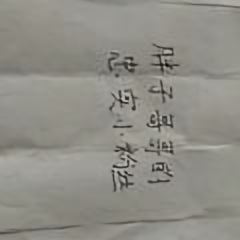 胖子哥哥的
忠实小粉丝